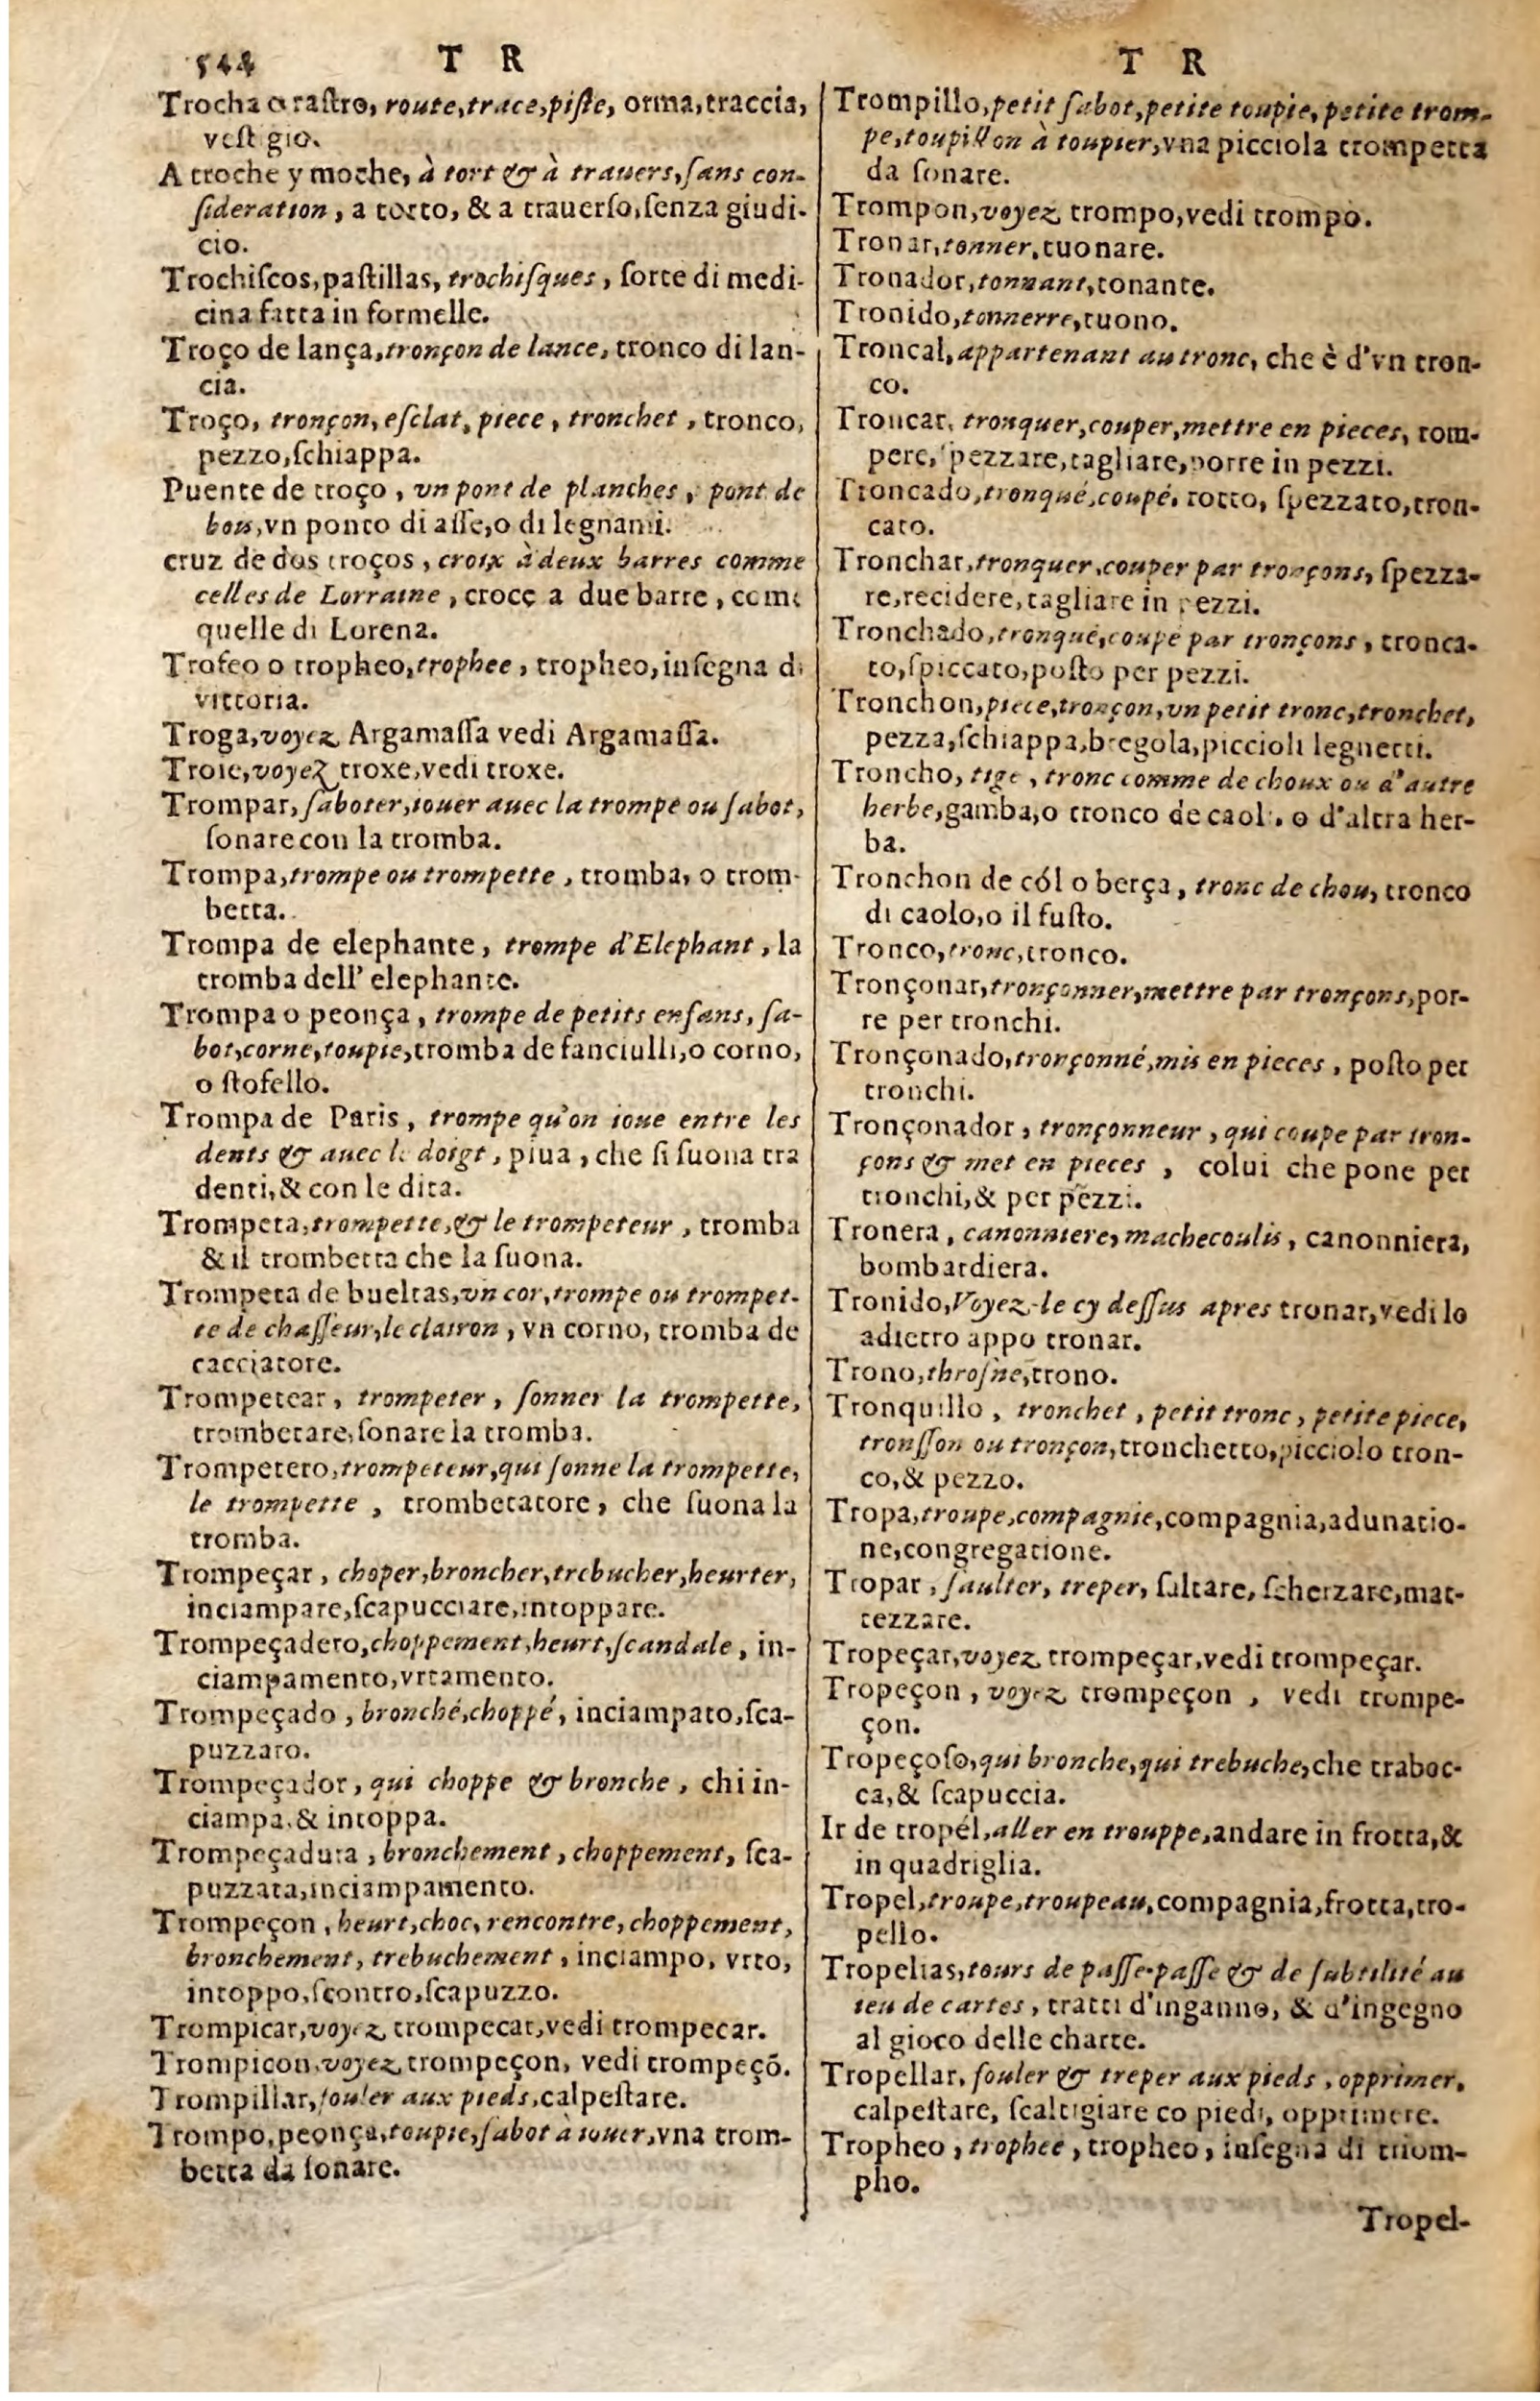 544 T R
T R
Trocha o raſtro, route,trace,piſte, orma,traccia,
veſtigio.
A troche y moche, à tort & à trauers,ſans con-
ſideration, a torto, & a trauerſo,ſenza giudi-
cio.
Trochiſcos,paſtillas, trochiſques, ſorte di medi-
cina fatta in formelle.
Troço de lança,tronçon de lance, tronco di lan-
cia.
Troço, tronçon, eſclat, piece, tronchet, tronco,
pezzo,ſchiappa.
Puente de troço, vn pont de planches, pont de
bou,vn ponto di aſſe,o di legnami.
cruz de dos troços, croix à deux barres comme
celles de Lorraine, croce a due barre, come
quelle di Lorena.
Trofeo o tropheo,trophee, tropheo,inſegna di
vittoria.
Troga,voyez Argamaſſa vedi Argamaſſa.
Troie,voyez troxe,vedi troxe.
Trompar, ſaboter,iouer auec la trompe ou ſabot,
ſonare con la tromba.
Trompa,trompe ou trompette, tromba, o trom-
betta.
Trompa de elephante, trompe d'Elephant, la
tromba dell' elephante.
Trompa o peonça, trompe de petits enfans, ſa-
bot,corne,toupie,tromba de fanciulli,o corno,
o ſtofello.
Trompa de Paris, trompe qu'on ioue entre les
dents & auec le doigt, piua, che ſi ſuona tra
denti,& con le dita.
Trompeta,trompette,& le trompeteur, tromba
& il trombetta che la ſuona.
Trompeta de bueltas,vn cor,trompe ou trompet-
te de chaſſeur,le clairon, vn corno, tromba de
cacciatore.
Trompetear, trompeter, ſonner la trompette,
trombetare,ſonare la tromba.
Trompetero,trompeteur,qui ſonne la trompette,
le trompette, trombetatore, che ſuona la
tromba.
Trompeçar, choper,broncher,trebucher,heurter,
inciampare,ſcapucciare,intoppare.
Trompeçadero,choppement,heurt,ſcandale, in-
ciampamento,vrtamento.
Trompeçado, bronché,choppé, inciampato,ſca-
puzzato.
Trompeçador, qui choppe & bronche, chi in-
ciampa,& intoppa.
Trompeçadura, bronchement, choppement, ſca-
puzzata,inciampamento.
Trompeçon, heurt,choc, rencontre, choppement,
bronchement, trebuchement, inciampo, vrto,
intoppo,ſcontro,ſcapuzzo.
Trompicar,voyez trompecar,vedi trompecar.
Trompicon,voyez trompeçon, vedi trompeçõ.
Trompillar,fouler aux pieds,calpeſtare.
Trompo,peonça,toupie,ſabot à iouer,vna trom-
betta da ſonare.
Trompillo,petit ſabot,petite toupie,petite trom-
pe,toupillon à toupier,vna picciola trompetta
da ſonare.
Trompon,voyez trompo,vedi trompo.
Tronar,tonner,tuonare.
Tronador,tonnant,tonante.
Tronido,tonnerre,tuono.
Troncal,appartenant au tronc, che è d'vn tron-
co.
Troncar, tronquer,couper,mettre en pieces, rom-
pere, spezzare,tagliare,porre in pezzi.
Troncado,tronqué,coupé, rotto, ſpezzato,tron-
cato.
Tronchar,tronquer,couper par tronçons, ſpezza-
re,recidere,tagliare in pezzi.
Tronchado,tronqué,coupé par tronçons, tronca-
to,ſpiccato,poſto per pezzi.
Tronchon,piece,tronçon,vn petit tronc,tronchet,
pezza,ſchiappa,bregola,piccioli legnetti.
Troncho, tige, tronc comme de choux ou d'autre
herbe,gamba,o tronco de caoli, o d'altra her-
ba.
Tronchon de cól o berça, tronc de chou, tronco
di caolo,o il fuſto.
Tronco,tronc,tronco.
Tronçonar,tronçonner,mettre par tronçons,por-
re per tronchi.
Tronçonado,tronçonné,mis en pieces, poſto per
tronchi.
Tronçonador, tronçonneur, qui coupe par tron-
çons & met en pieces, colui che pone per
tronchi,& per pezzi.
Tronera, canonniere, machecoulis, canonniera,
bombardiera.
Tronido,Voyez-le cy deſſus apres tronar,vedi lo
adietro appo tronar.
Trono,throſne,trono.
Tronquillo, tronchet, petit tronc, petite piece,
tronſſon ou tronçon,tronchetto,picciolo tron-
co,& pezzo.
Tropa,troupe,compagnie,compagnia,adunatio-
ne,congregatione.
Tropar, ſaulter, treper, ſaltare, ſcherzare,mat-
tezzare.
Tropeçar,voyez trompeçar,vedi trompeçar.
Tropeçon, voyez trompeçon, vedi trompe-
çon.
Tropeçoſo,qui bronche,qui trebuche,che traboc-
ca,& ſcapuccia.
Ir de tropél,aller en trouppe,andare in frotta,&
in quadriglia.
Tropel,troupe,troupeau,compagnia,frotta,tro-
pello.
Tropelias,tours de paſſe-paſſe & de ſubtilité au
ieu de cartes, tratti d'inganno, & d'ingegno
al gioco delle charte.
Tropellar, fouler & treper aux pieds, opprimer,
calpeſtare, ſcaltigiare co piedi, opprimere.
Tropheo, trophee, tropheo, inſegna di triom-
pho.
Tropel-